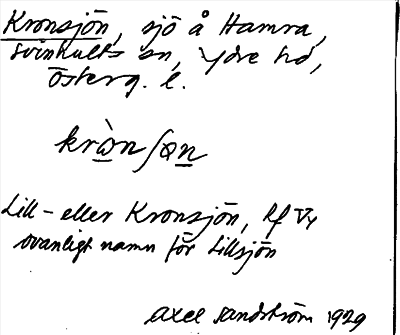 Kronsjön, sjö å Hamra,
Svinhults sn, Ydre hd,
Österg. l.
kròn ʃɵn
Lill- eller Kronsjön, Rf V4
ovanligt namn för Lillsjön
Axel Sandström 1929